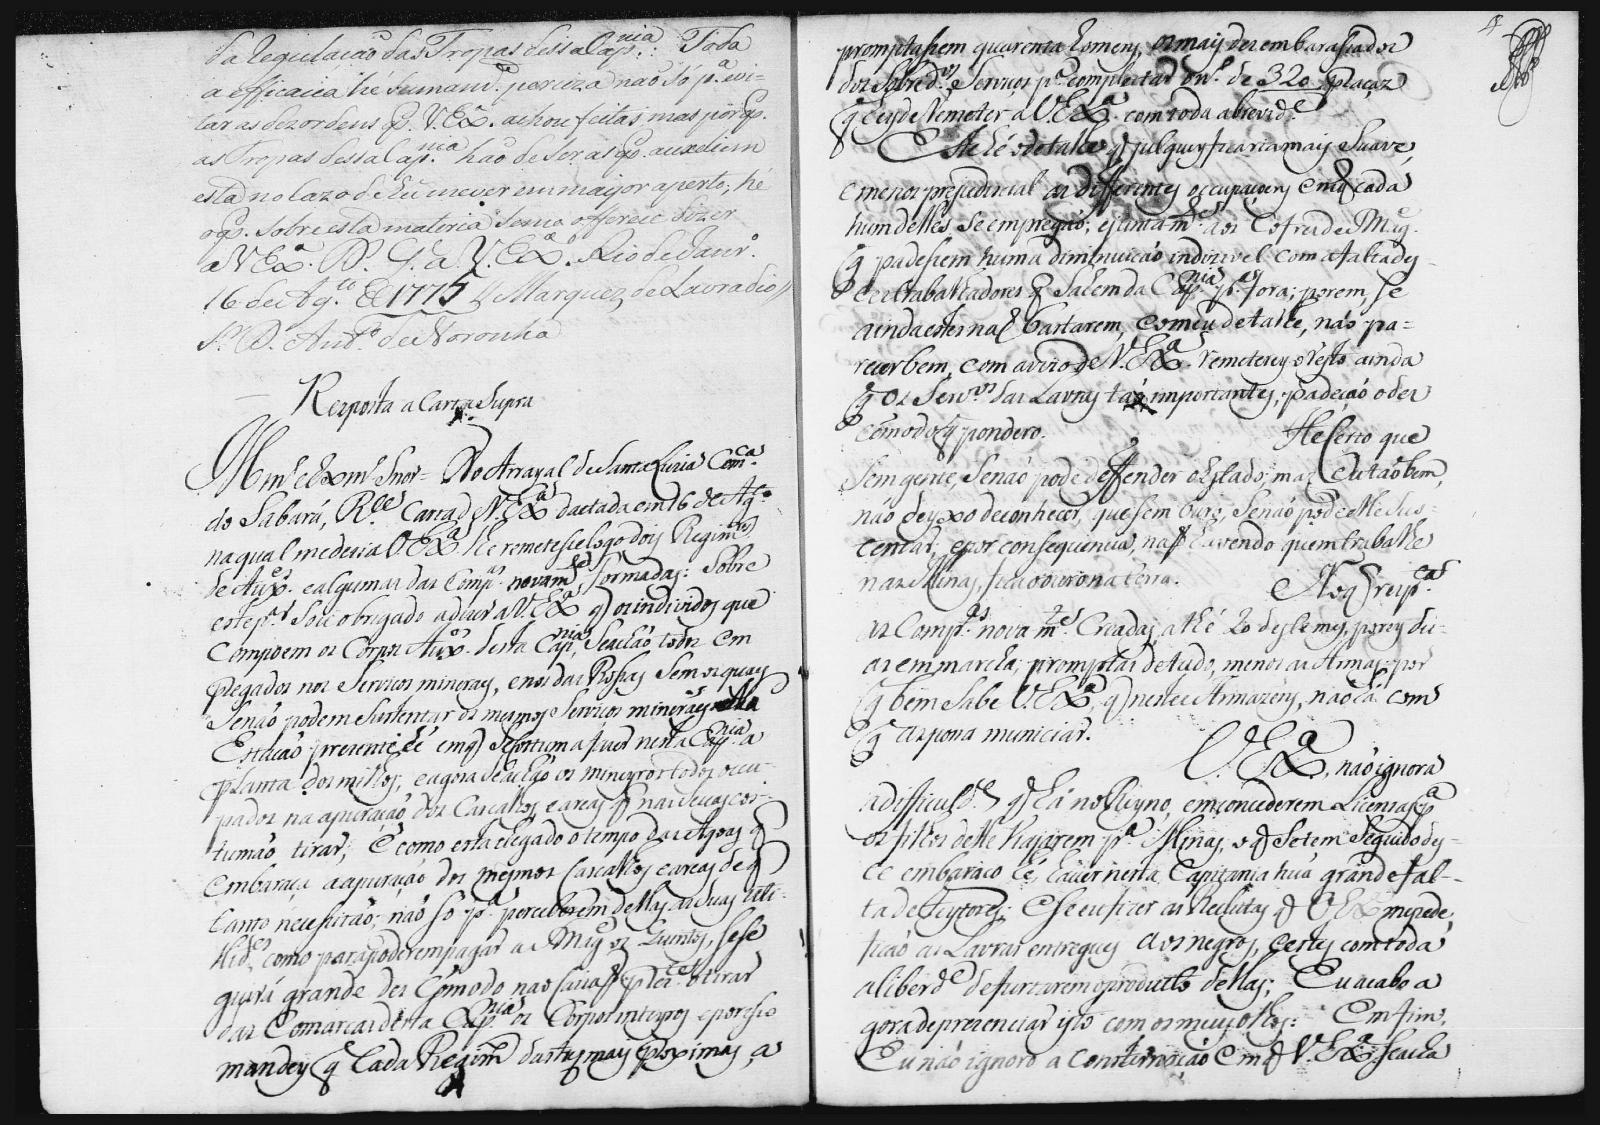 da regulação das Tropas dessa Cap.nia: Toda
a efficacia hé sumam.te perciza não só p.a evi-
tar as dezordens q. V. Ex.a achou feitas mas porq.
as Tropas dessa Cap.nia hão de ser as q. auxeliem
esta no cazo de se ver em mayor aperto; hé
o q. sobre esta materia se me offerece dizer
a V Ex.a D. G. a V. Ex.a Rio de Janr.o
16 de Ag.to de 1775 // Marquez de Lavradio //
S.r D. Ant.o de Noronha
Resposta a Carta Supra
Illm.o e Exm.o Snor = No Arrayal de Santa Luzia Com.ca
do Sabará, R.ce Carta d V. Ex.a dactada em 16 de Ag.to
na qual me dezia V Ex.a lhe remetese logo dois Regim.tos
de Aux.es e algumas das Comp.as novam.te formadas: Sobre
este p.ar Sou obrigado a dizer a V. Ex.a q os individos que
Compoem os Corpos Aux.es desta Cap.nia, Se achão todos em
plegados nos Serviços mineraes, e nos das Rossas Sem os quaes
Senão podem Sustentar os mesmos Serviços mineraes
Estação prezente, hé em q Se costuma fazer nesta Cap.nia a
planta dos milhos, e agora Se achão os mineyros todos ocu-
pados na apuração dos Cascalhos, e areas q nas Secas cos-
tumão tirar; E como está chegado o tempo das Agoas q
embaraça a apuração dos mesmos Cascalhos e areas de q
tanto necessitão, não só p.a perceberem dellas as Suas uti-
lid.es como para poderem pagar a S. Mag.e os Quintos, Se se
guirá grande des Cómodo nas
das Comarcas desta Cap.nia os Corpos inteyros e por isso
mandey q Cada Regim.to das tres mais proximas, a
promptassem quarenta homens, os mais dezembaraçados
dos Sobred.os Serviços p.a completar o n.o de 320 praças
q hey de remeter a V. Ex.a com toda a brevid.e
Este hé o detalhe q julguey ficaria mais Suave,
e menos prejudicial as differentes occupaçoens em q cada
hum delles Se empregão; e juntam.te aos Cofres de S. Mag.e
q padessem huma diminuicão indizivel com a falta des-
tes trabalhadores q Sahem da Cap.nia p.a fora; porem, se
ainda estes não bastarem, e o meu detalhe, não pa=
recer bem, com avizo de V. Ex.a remeterey o resto ainda
q os Serv.os das Lavras tão importantes, padeção o des
cómodo q pondero.
He Certo que
Sem gente, Se não pode deffender o Estado; mas Eu tãobem,
não deyxo de conhecer, que sem ouro, Senão pode elle Sus-
tentar, e por consequencia, não havendo quem trabalhe
nas Minas, fica o ouro na terra.
No q resp.ta
as Comp.as novam.te Creadas, athé 20 deste mes, porey to-
as em marcha, promptas de tudo, menos as Armas, por
q bem Sabe V. Ex.a, q nestes Armazens, não há com
q as possa municiar.
V. Ex.a, não ignora
a difficuld.e q há no Reyno, em concederem Licensas p.a
os filhos delle Viajarem p.a Minas, o q Se tem Seguido des-
te embaraço hé, haver nesta Capitania húa grande fal-
ta de Feytores; e se eu fizer as Reclutas q V Ex.a me pede,
ficão as Lavras entregues aos negros, e estes com toda
a liberd.e de furtarem o producto dellas; Eu acabo a
gora de prezenciar isto com os meus olhos: Em fim,
Eu não ignoro a Consternação em q V. Ex.a Se acha